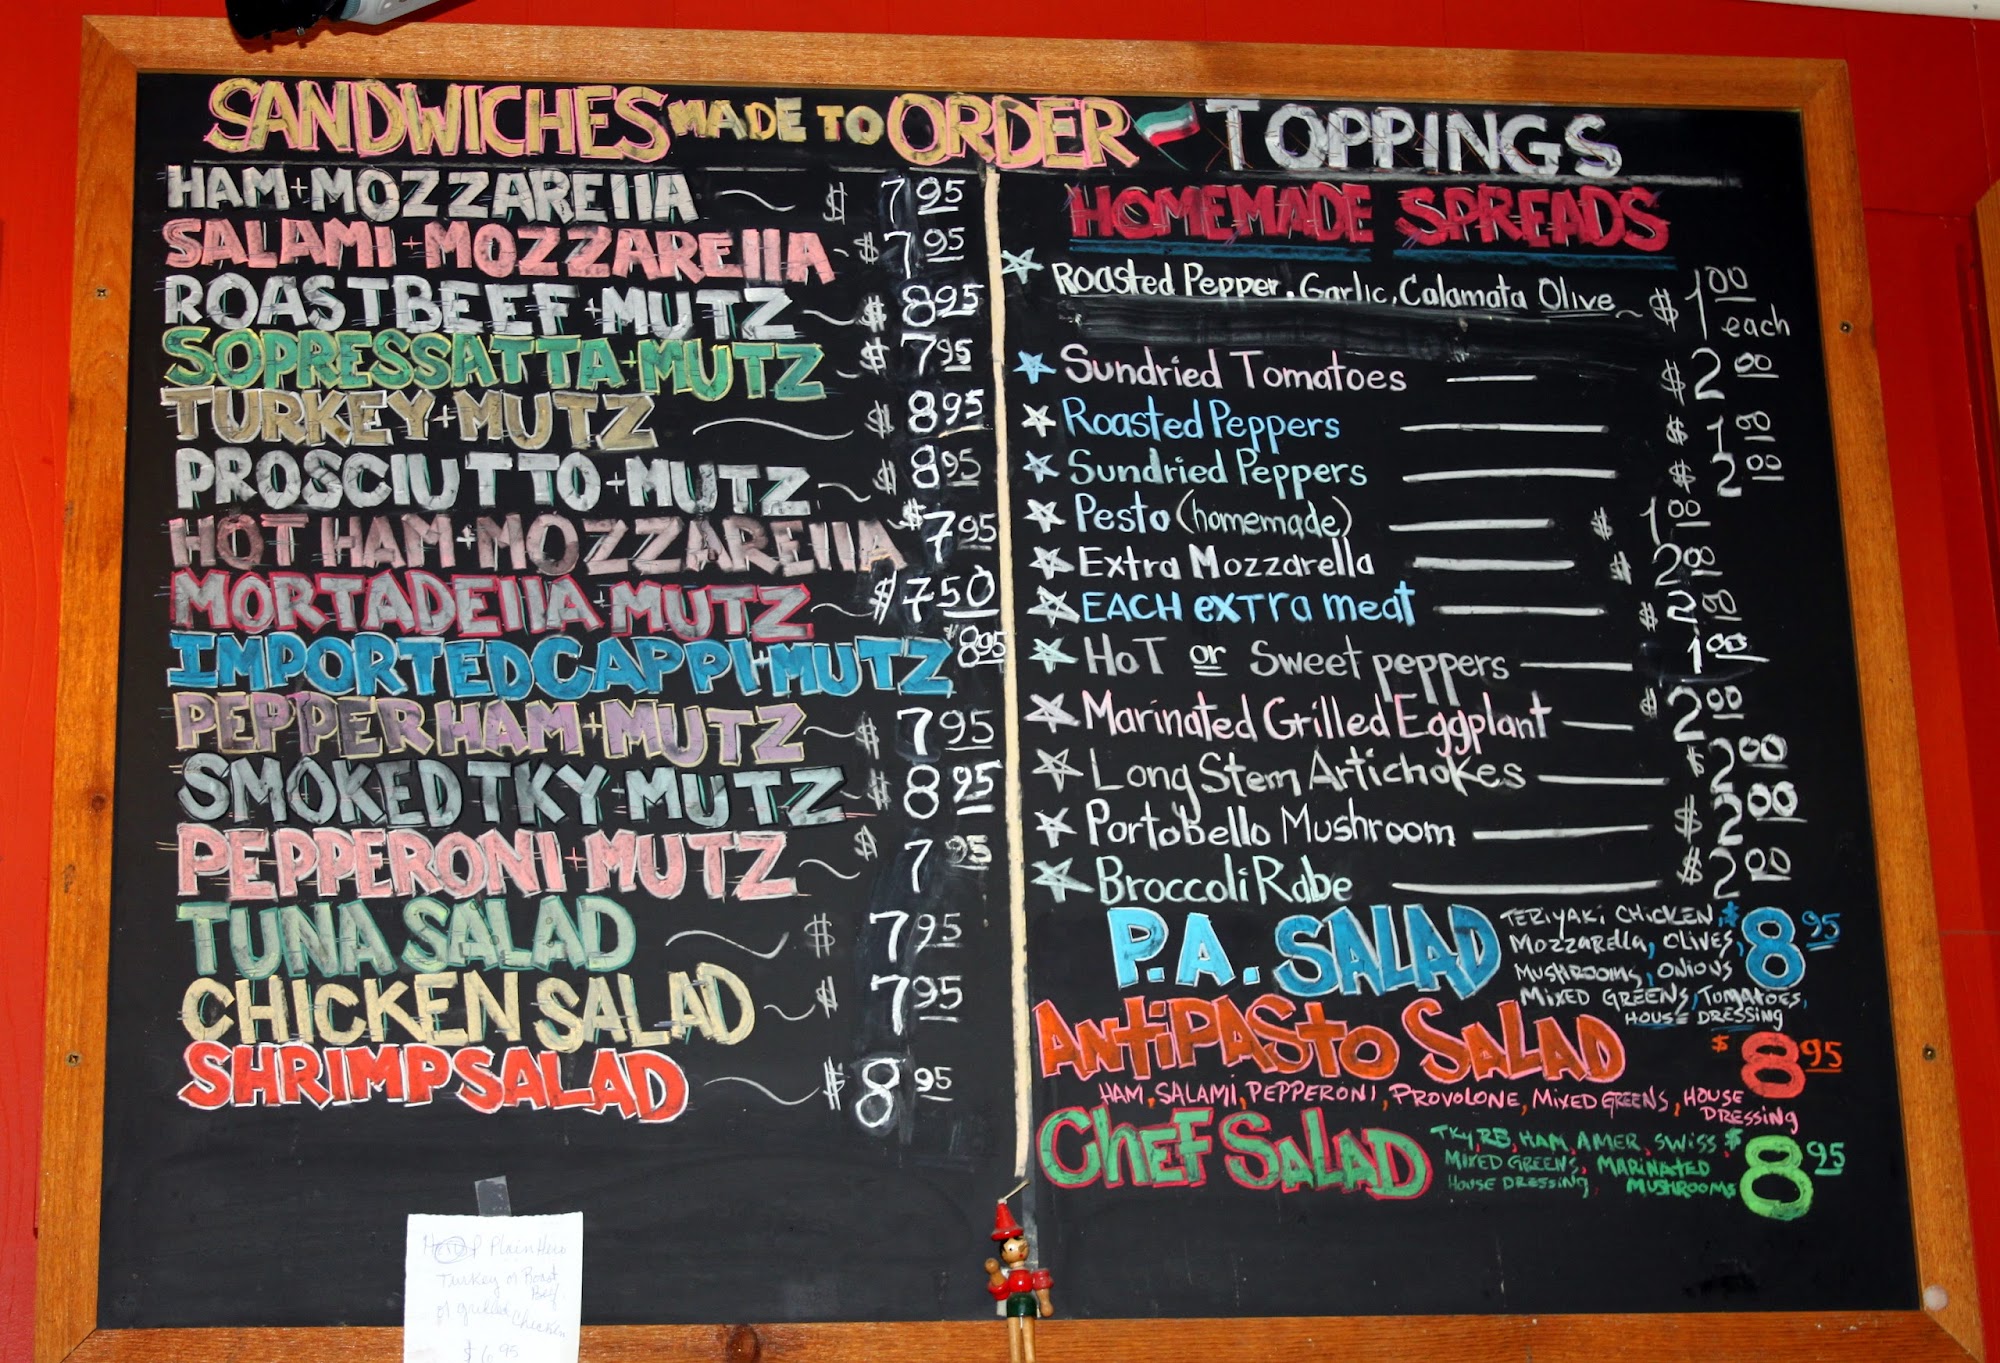 SANDWICHES MADE TO ORDER
HAM+MOZZARELLA ~ $ 7 95
SALAMI+MOZZARELLA ~ $ 7 95
ROAST BEEF+MUTZ ~ $ 8 95
SOPRESSATTA+MUTZ ~ $ 7 95
TURKEY+MUTZ ~ $ 8 95
PROSCIUTTO+MUTZ ~ $ 8 95
HOT HAM+MOZZARELLA $ 7 95
MORTADELLA+MUTZ ~ $ 7 50
IMPORTED CAPPI+MUTZ $ 8 95
PEPPER HAM+MUTZ ~ $ 7 95
SMOKED TKY+MUTZ ~ $ 8 95
PEPPERONI+MUTZ ~ $ 7 95
TUNA SALAD ~ $ 7 95
CHICKEN SALAD ~ $ 7 95
SHRIMP SALAD ~ $ 8 95
Plain Hero
Turkey or Roast
Beef
or grilled
Chicken
$ 6 95
TOPPINGS
HOMEMADE SPREADS
Roasted Pepper, Garlic, Calamata Olive ~ $ 1 00
each
Sundried Tomatoes — $ 2 00
Roasted Peppers — $ 1 00
Sundried Peppers — $ 2 00
Pesto (homemade) — $ 1 00
Extra Mozzarella — $ 2 00
EACH extra meat — $ 2 00
HOT or Sweet peppers — 1 00
Marinated Grilled Eggplant — $ 2 00
Long Stem Artichokes — $ 2 00
Portobello Mushroom — $ 2 00
Broccoli Rabe — $ 2 00
P.A. SALAD $ 8 95
TERIYAKI CHICKEN,
MOZZARELLA, OLIVES,
MUSHROOMS, ONIONS
MIXED GREENS, TOMATOES,
HOUSE DRESSING
ANTIPASTO SALAD $ 8 95
HAM, SALAMI, PEPPERONI, PROVOLONE, MIXED GREENS, HOUSE
DRESSING
CHEF SALAD $ 8 95
TKY, RB, HAM, AMER, SWISS
MIXED GREENS, MARINATED
HOUSE DRESSING, MUSHROOMS